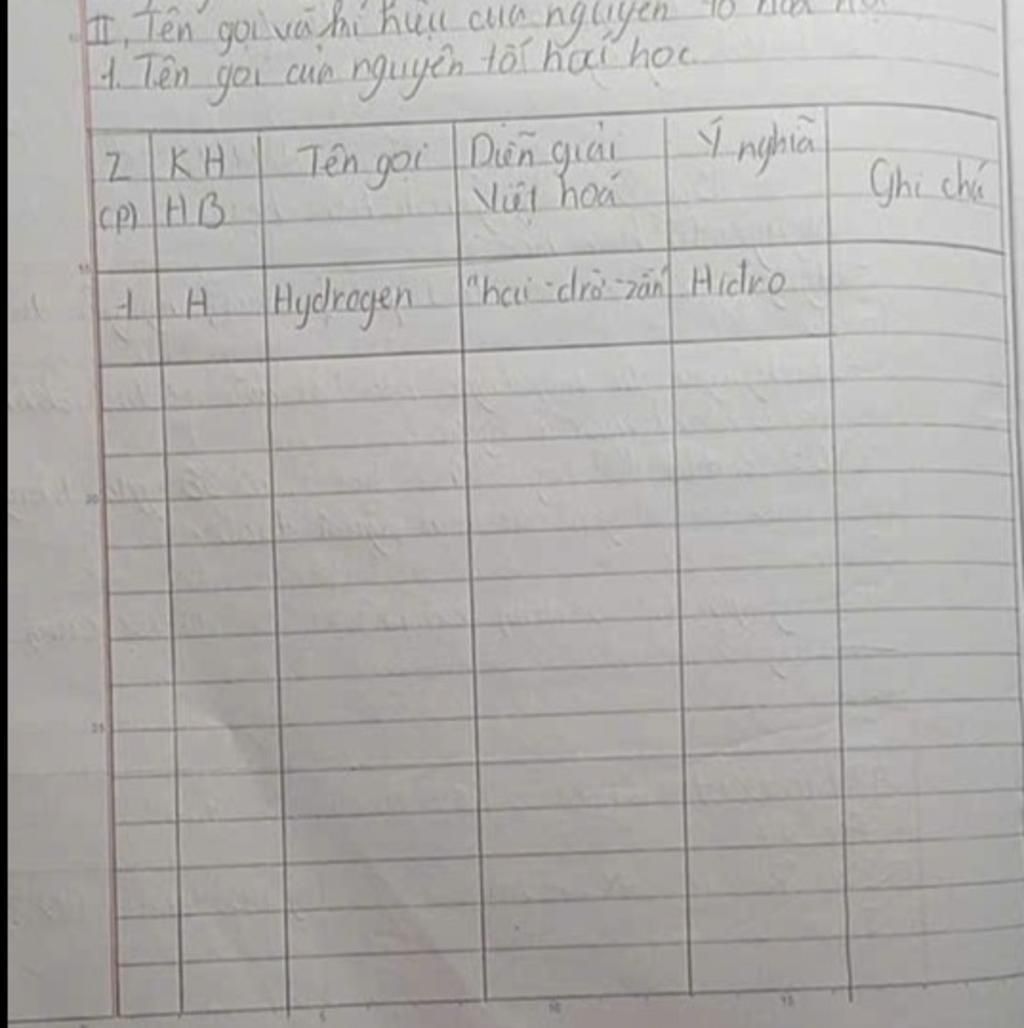 II, Tên gọi và kí hiệu của nguyên tố hoá
1. Tên gọi của nguyên tố hoá học
Z (P) KH HB Tên gọi Diễn giải Việt hoá Ý nghĩa Ghi chú
1 H Hydrogen "hai-đrờ-zần" Hiđro